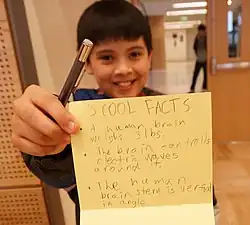 3 COOL FACTS
• A human brain
weighs 3 lbs.
• The brain controlls
electric waves
around it
• The human
brain stem is vertical
in angle